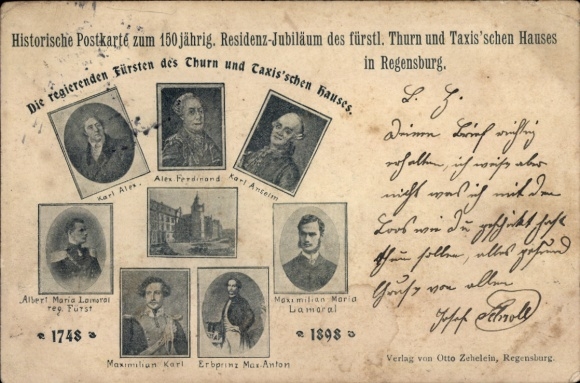 Historische Postkarte zum 150jährig. Residenz-Jubiläum des fürstl. Thurn und Taxis'schen Hauses
in Regensburg.
Die regierenden Fürsten des Thurn und Taxis'schen Hauses.
Karl Alex.
Alex Ferdinand
Karl Anselm
Albert Maria Lamoral
reg. Fürst
Maximilian Maria
Lamoral
1748
1898
Maximilian Karl
Erbprinz Max. Anton
L. H.
Deinen Brief richtig
erhalten, ich weiß aber
nicht was ich mit den
Loos wie du geschickt hast
thun sollen, alles gesund
Gruß von allen
Josef
Verlag von Otto Zehelein, Regensburg.